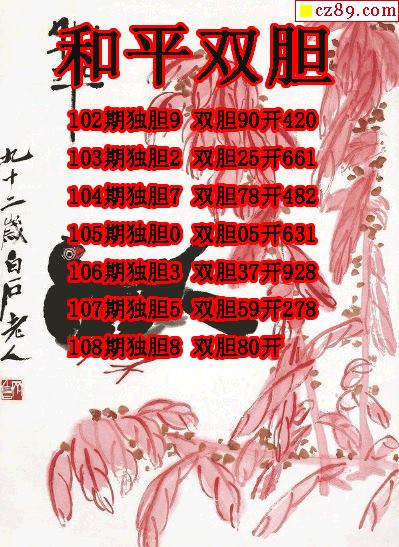 cz89.com
和平双胆
102期独胆9 双胆90开420
103期独胆2 双胆25开661
104期独胆7 双胆78开482
105期独胆0 双胆05开631
106期独胆3 双胆37开928
107期独胆5 双胆59开278
108期独胆8 双胆80开
九十二岁白石老人